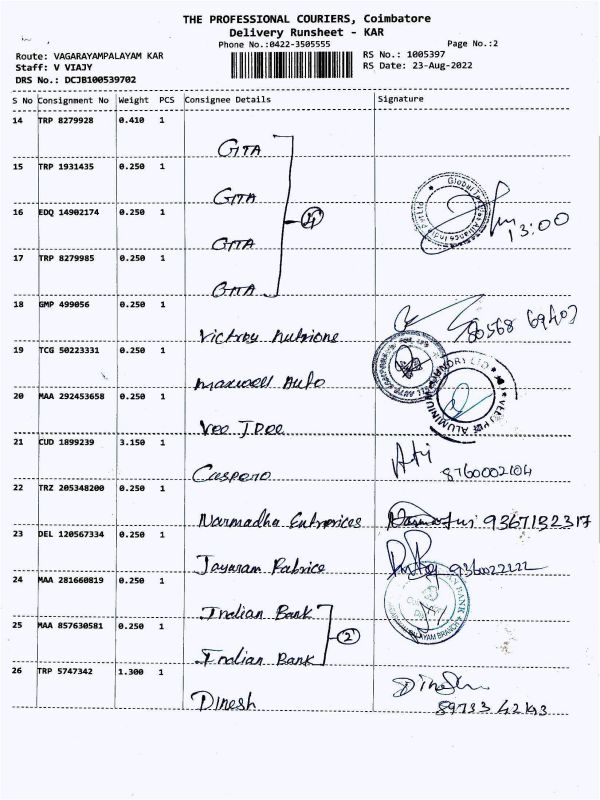 THE PROFESSIONAL COURIERS, Coimbatore
Delivery Runsheet - KAR
Phone No.:0422-3505555 Page No.:2
Route: VAGARAYAMPALAYAM KAR RS No.: 1005397
Staff: V VIAJY RS Date: 23-Aug-2022
DRS No.: DCJB100539702
S No Consignment No Weight PCS Consignee Details Signature
14 TRP 8279928 0.410 1
GITA
15 TRP 1931435 0.250 1
GITA
16 EDQ 14902174 0.250 1
GITA
4
13:00
17 TRP 8279985 0.250 1
GITA
18 GMP 499056 0.250 1
19 TCG 50223331 0.250 1
Maxwell Auto
20 MAA 292453658 0.250 1
Vee J Dee
21 CUD 1899239 3.150 1
Caspero
8760002104
22 TRZ 205348200 0.250 1
Narmadha
9367132317
23 DEL 120567334 0.250 1
Jayaram Fabrice
24 MAA 281660819 0.250 1
Indian Bank
2
25 MAA 857630581 0.250 1
Indian Bank
26 TRP 5747342 1.300 1
Dinesh